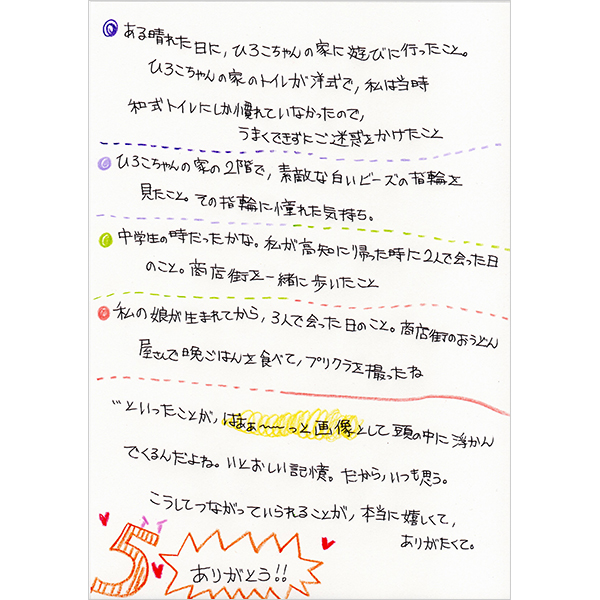 ある晴れた日に、ひろこちゃんの家に遊びに行ったこと。
ひろこちゃんの家のトイレが洋式で、私は当時
和式トイレにしか慣れていなかったので、
うまくできずにご迷惑をかけたこと
ひろこちゃんの家の2階で、素敵な白いビーズの指輪を
見たこと。その指輪に憧れた気持ち。
中学生の時だったかな。私が高知に帰った時に2人で会った日
のこと。商店街を一緒に歩いたこと
私の娘が生まれてから、3人で会った日のこと。商店街のおうどん
屋さんで晩ごはんを食べて、プリクラを撮ったね
〃といったことが、はぁぁ〜〜っと画像として頭の中に浮かん
でくるんだよね。いとおしい記憶。だから、いつも思う。
こうしてつながっていられることが、本当に嬉しくて、
ありがたくて。
5
ありがとう!!